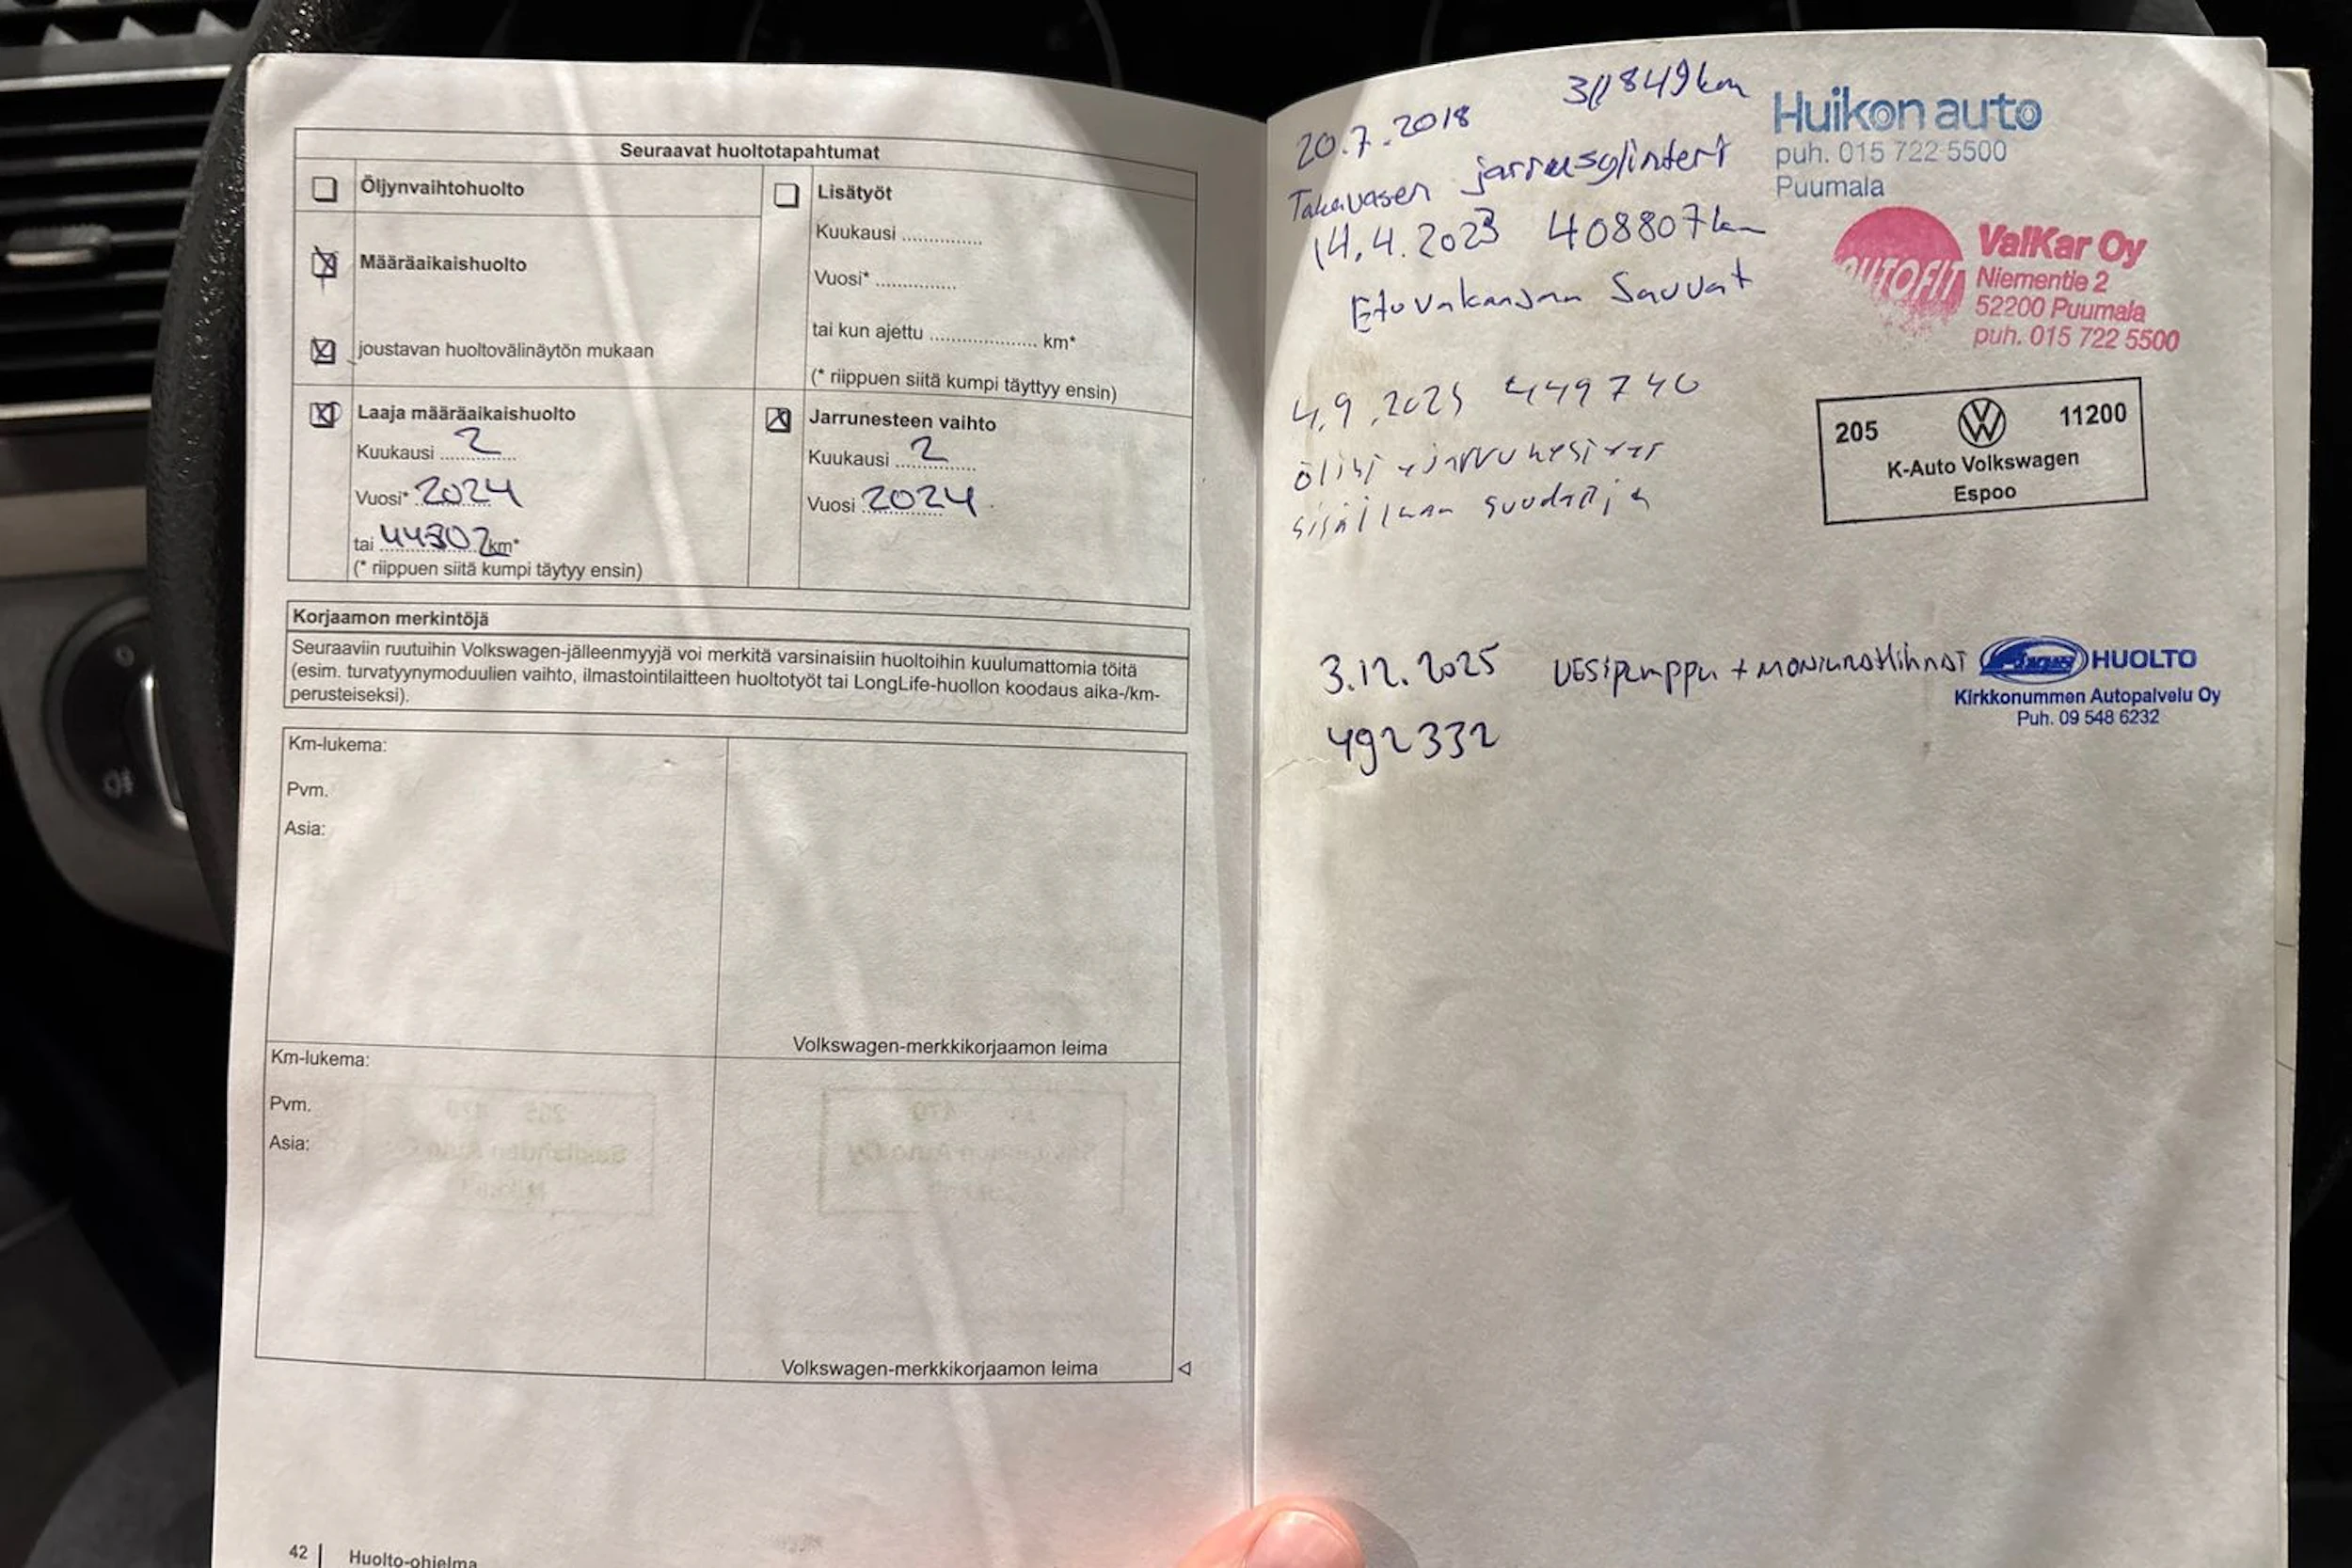 Seuraavat huoltotapahtumat
Öljynvaihtohuolto
Määräaikaishuolto
joustavan huoltovälinäytön mukaan
Laaja määräaikaishuolto
Kuukausi 2
Vuosi* 2024
tai 44302 km*
(* riippuen siitä kumpi täytyy ensin)
Lisätyöt
Kuukausi ...............
Vuosi* ...............
tai kun ajettu .................... km*
(* riippuen siitä kumpi täyttyy ensin)
Jarrunesteen vaihto
Kuukausi 2
Vuosi 2024
Korjaamon merkintöjä
Seuraaviin ruutuihin Volkswagen-jälleenmyyjä voi merkitä varsinaisiin huoltoihin kuulumattomia töitä
(esim. turvatyynymoduulien vaihto, ilmastointilaitteen huoltotyöt tai LongLife-huollon koodaus aika-/km-
perusteiseksi).
Km-lukema:
Pvm.
Asia:
Volkswagen-merkkikorjaamon leima
Km-lukema:
Pvm.
Asia:
Volkswagen-merkkikorjaamon leima
42 | Huolto-ohjelma
20.7.2018 311849km
Takavasen jarrusylinteri
Huikon auto
puh. 015 722 5500
Puumala
14.4.2023 408807km
Etuvakaajan Sauvat
AUTOFIT
ValKar Oy
Niementie 2
52200 Puumala
puh. 015 722 5500
4.9.2023 449740
öljyt + jarrunesteet
sisäilman suodatin
205 VW 11200
K-Auto Volkswagen
Espoo
3.12.2025 VESipumppu + MONiURAHihnat
492332
HUOLTO
Kirkkonummen Autopalvelu Oy
Puh. 09 548 6232